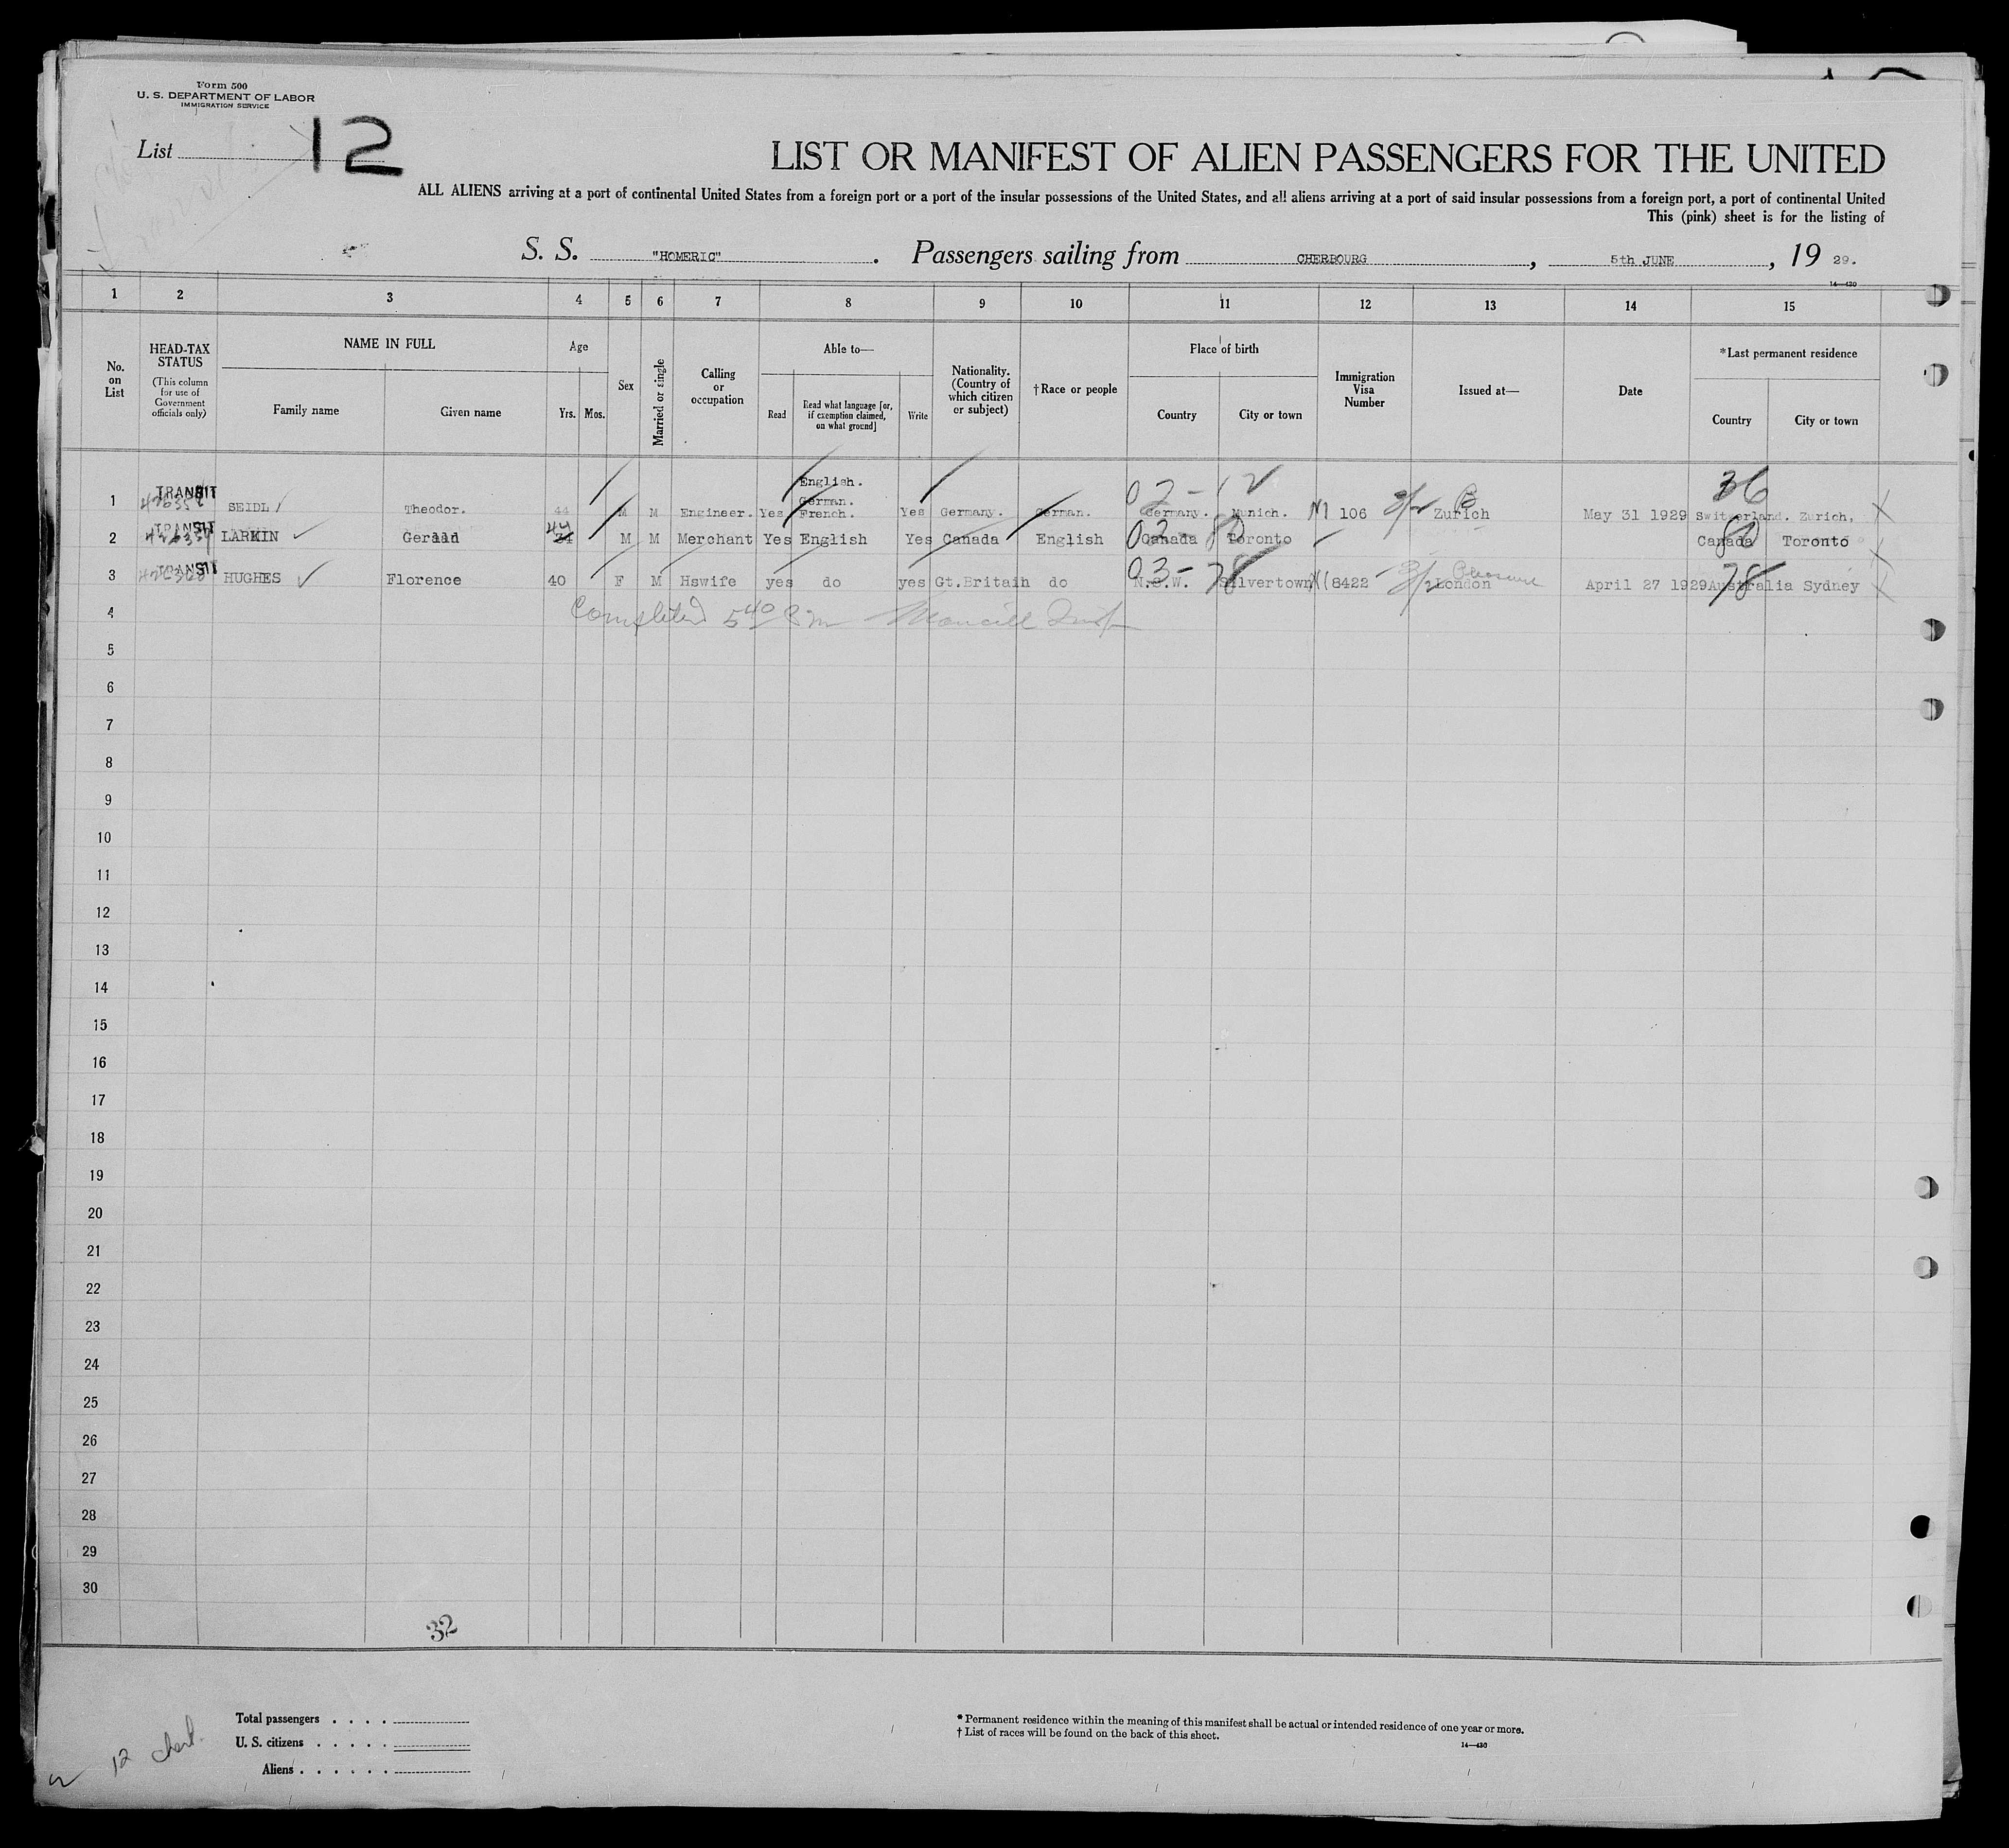 Form 500
U. S. DEPARTMENT OF LABOR
IMMIGRATION SERVICE
List 12
LIST OR MANIFEST OF ALIEN PASSENGERS FOR THE UNITED
ALL ALIENS arriving at a port of continental United States from a foreign port or a port of the insular possessions of the United States, and all aliens arriving at a port of said insular possessions from a foreign port, a port of continental United
This (pink) sheet is for the listing of
S. S. "HOMERIC". Passengers sailing from CHERBOURG, 5th JUNE, 19 29.
14—430
1 2 3 4 5 6 7 8 9 10 11 12 13 14 15
No. on List
HEAD-TAX STATUS (This column for use of Government officials only)
NAME IN FULL
Family name Given name
Age
Yrs. Mos.
Sex
Married or single
Calling or occupation
Able to—
Read Read what language [or, if exemption claimed, on what ground] Write
Nationality. (Country of which citizen or subject)
†Race or people
Place of birth
Country City or town
Immigration Visa Number
Issued at—
Date
*Last permanent residence
Country City or town
1 TRANSIT SEIDL Theodor. 44 M M Engineer. Yes English. German. French. Yes Germany. German. 02-12 Germany. Munich. 106 3/2 B Zurich May 31 1929 36 Switzerland. Zurich,
2 TRANSIT LARKIN Gerald 44 M M Merchant Yes English Yes Canada English Canada Toronto 80 Canada Toronto
3 TRANSIT HUGHES Florence 40 F M Hswife yes do yes Gt.Britain do 03-78 N.S.W. Silvertown 8422 3/2 Pleasure London April 27 1929 78 Australia Sydney
4 Completed 5 40 Pm
5
6
7
8
9
10
11
12
13
14
15
16
17
18
19
20
21
22
23
24
25
26
27
28
29
30
32
Total passengers . . . .
U. S. citizens . . . . .
Aliens . . . . . .
12 cherb.
* Permanent residence within the meaning of this manifest shall be actual or intended residence of one year or more.
† List of races will be found on the back of this sheet.
14—430